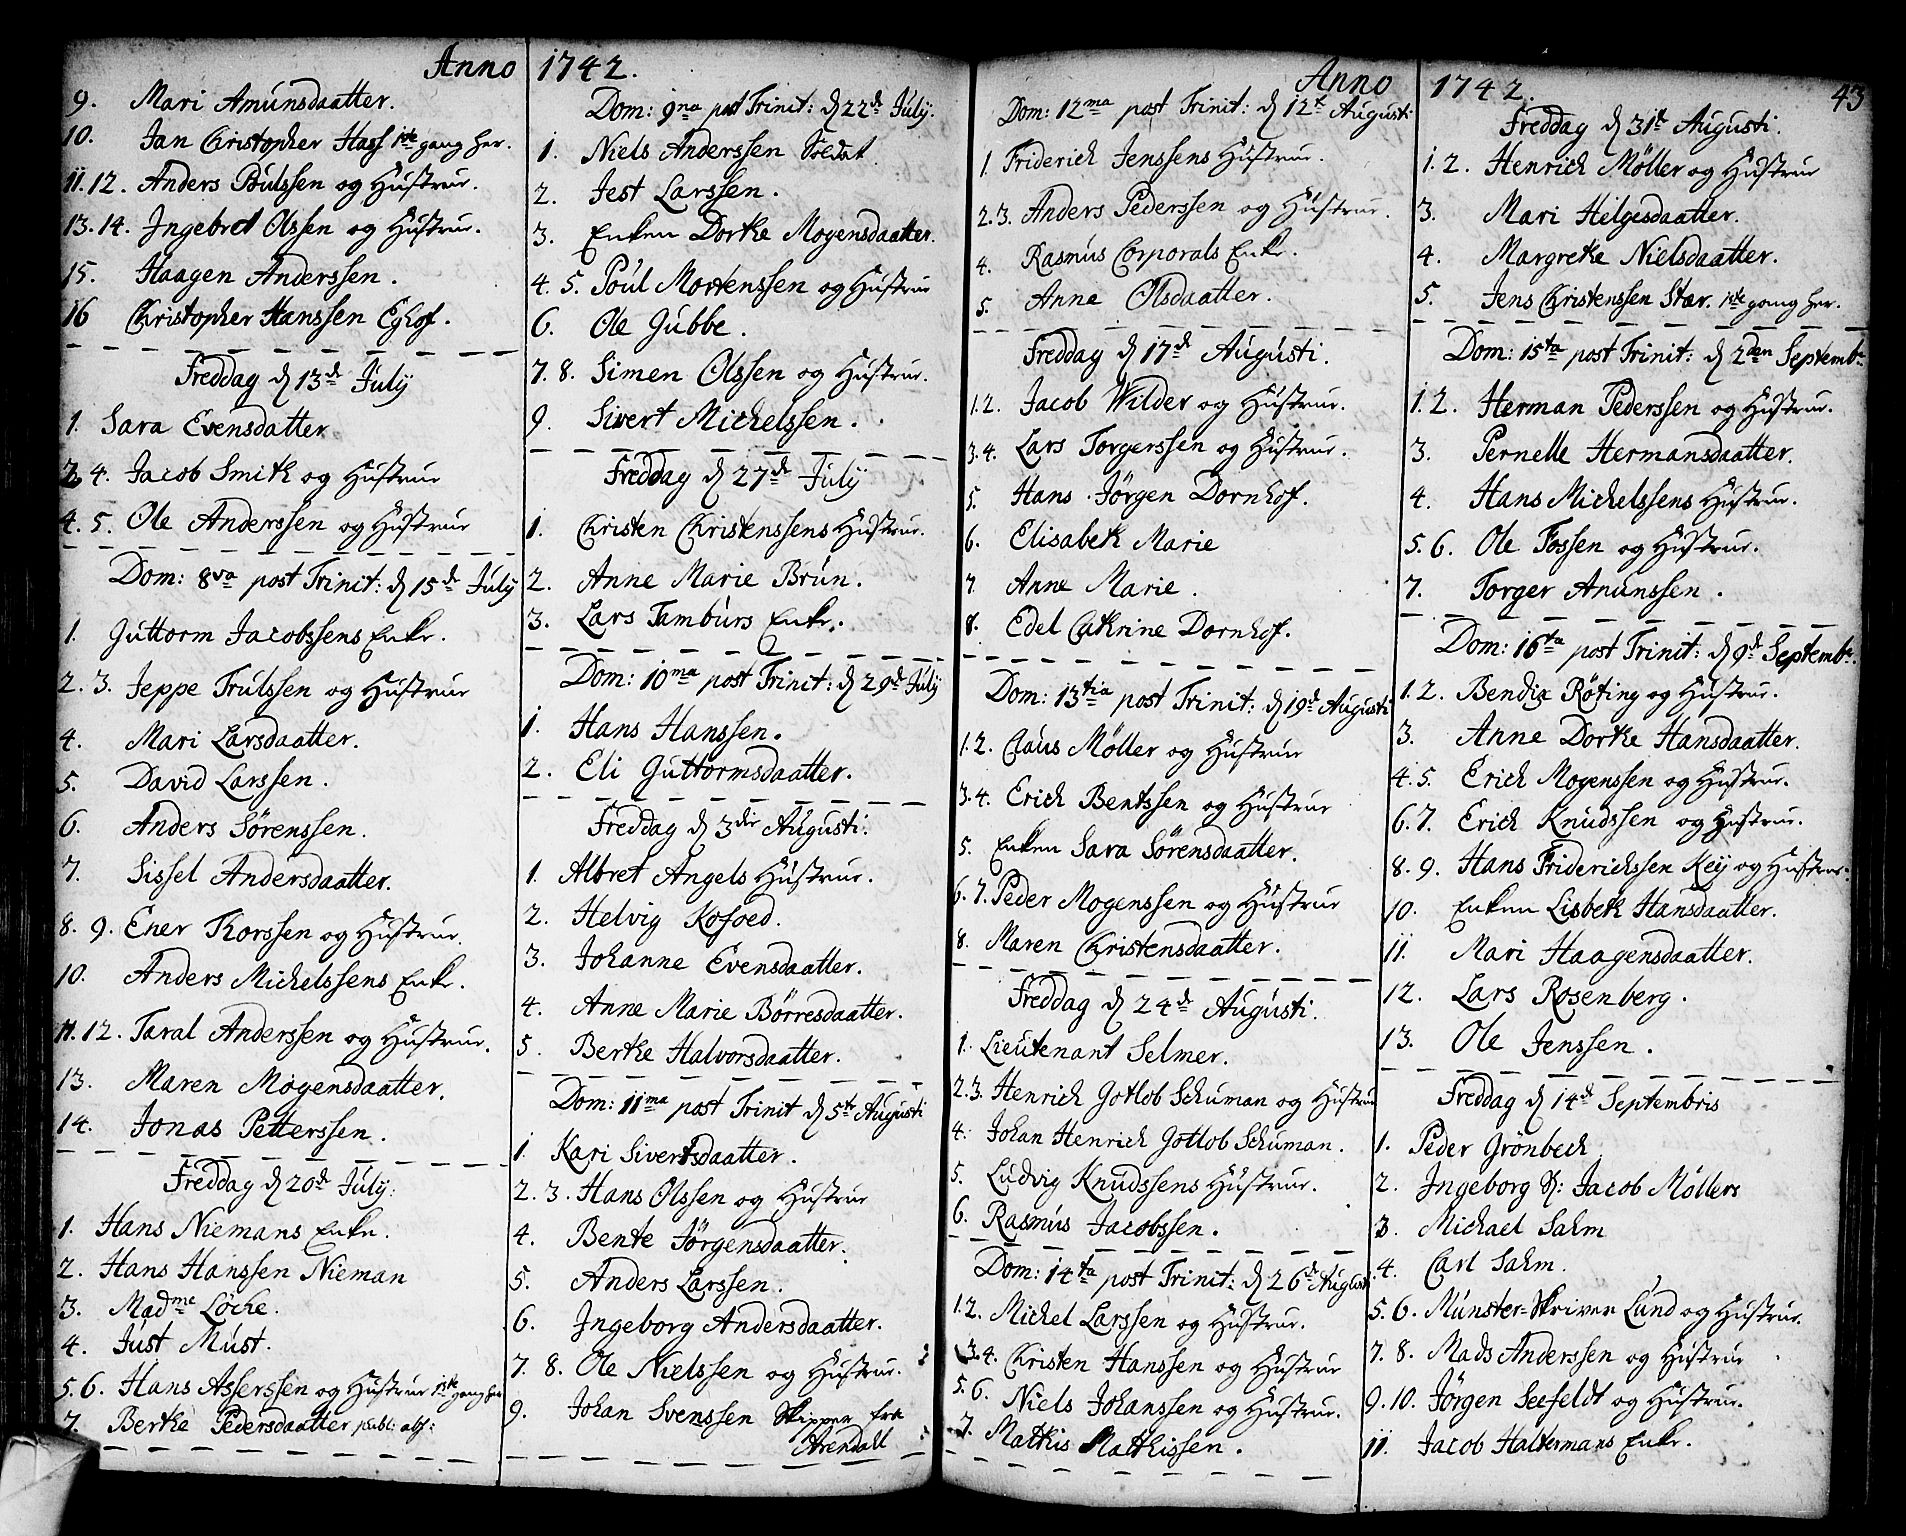 Anno 1742.
9. Mari Amunsdaatter.
10. Jan Christopher Hass 1ste gang her.
11. 12. Anders Poulssen og Hustrue.
13. 14. Jngebret Olssen og Hustrue.
15. Haagen Anderssen.
16 Christopher Hanssen Eghof.
Freddag d 13de July
1. Sara Evensdatter
3. 4. Jacob Smith og Hustrue
4. 5. Ole Anderssen og Hustrue
Dom: 8va post Trinit: d 15de July
1. Guttorm Jacobssens Enke.
2. 3. Jeppe Trulssen og Hustrue
4. Mari Larsdaatter.
5. David Larssen.
6. Anders Sörenssen.
7. Sissel Andersdaatter.
8. 9. Ener Thorssen og Hustrue.
10. Anders Michelssens Enke.
11. 12. Taral Anderssen og Hustrue.
13. Maren Mogensdaatter.
14. Jonas Petterssen.
Freddag d 20de July:
1. Hans Niemans Enke.
2. Hans Hanssen Nieman
3. Madme Löche.
4. Just Must.
5. 6. Hans Asserssen og Hustrue 1ste gang her
7. Berthe Pedersdaatter publ: abs:
Dom: 9na post Trinit: d 22de July.
1. Niels Anderssen Soldat
2. Jest Larssen.
3. Enken Dorthe Mogensdaatter.
4. 5. Poul Mortenssen og Hustrue
6. Ole Gubbe.
7. 8. Simen Olssen og Hustrue.
9. Sivert Michelssen.
Freddag d 27de July
1. Christen Christenssens Hustrue.
2. Anne Marie Brun.
3. Lars Tamburs Enke.
Dom: 10ma post Trinit: d 29de July
1. Hans Hanssen.
2. Eli Guttormsdaatter.
Freddag d 3die Augusti.
1. Albret Angels Hustrue.
2. Helvig Kofoed.
3. Johanne Evensdaatter.
4. Anne Marie Börresdaatter.
5. Berthe Halvorsdaatter.
Dom: 11ma post Trinit d 5te Augusti
1. Kari Sivertsdaatter.
2. 3. Hans Olssen og Hustrue
4. Bente Jörgensdaatter.
5. Anders Larssen.
6. Jngeborg Andersdaatter.
7. 8. Ole Nielssen og Hustrue.
9. Johan Svenssen Skipper fra
Arendall
Anno 1742. 43
Dom: 12ma post Trinit: d 12te Augusti
1. Friderich Jenssens Hustrue.
2. 3. Anders Pederssen og Hustrue.
4. Rasmus Corporals Enke.
5. Anne Olsdaatter.
Freddag d 17de Augusti.
1. 2. Jacob Wilder og Hustrue.
3. 4. Lars Torgerssen og Hustrue.
5. Hans Jörgen Dornhof.
6. Elisabeth Marie
7. Anne Marie.
8. Edel Cathrine Dornhof.
Dom: 13tia post Trinit: d 19de Augusti
1. 2. Claus Möller og Hustrue
3. 4. Erich Bentssen og Hustrue
5. Enken Sara Sörensdaatter.
6. 7. Peder Mogenssen og Hustrue
8. Maren Christensdaatter.
Freddag d 24de Augusti.
1. Lieutenant Selmer.
2. 3. Henrich Gotlob Schuman og Hustrue
4. Johan Henrich Gottlob Schuman.
5. Ludvig Knudssens Hustrue.
6. Rasmus Jacobssen.
Dom: 14ta post Trinit: d 26de Augusti
1. 2. Michel Larssen og Hustrue.
3. 4. Christen Hanssen og Hustrue
5. 6. Niels Johanssen og Hustrue.
7. Mathis Mathissen.
Freddag d 31te Augusti.
1. 2. Henrich Möller og Hustrue
3. Mari Helgesdaatter.
4. Margrethe Nielsdaatter.
5. Jens Christenssen Stær. 1ste gang her.
Dom: 15ta post Trinit: d 2den Septembr.
1. 2. Herman Pederssen og Hustrue.
3. Pernelle Hermansdaatter.
4. Hans Michelssens Hustrue.
5. 6. Ole Fossen og Hustrue.
7. Torger Anunssen.
Dom: 16ta post Trinit: d 9de Septembr.
1. 2. Bendix Röting og Hustrue.
3. Anne Dorthe Hansdaatter.
4. 5 Erich Mogenssen og Hustrue.
6. 7. Erich Knudssen og Hustrue.
8. 9. Hans Friderichssen Key og Hustrue.
10. Enken Lisbeth Hansdaatter.
11. Mari Haagensdaatter.
12. Lars Rosenberg.
13. Ole Jenssen.
Freddag d 14de Septembris
1. Peder Grönbech
2. Jngeborg S: Jacob Möllers
3. Michael Sahm
4. Carl Sahm.
5. 6. Munster-Skriver Lund og Hustrue.
7. 8. Mads Anderssen og Hustrue
9. 10. Jörgen Seefeldt og Hustrue.
11. Jacob Haltermans Enke.